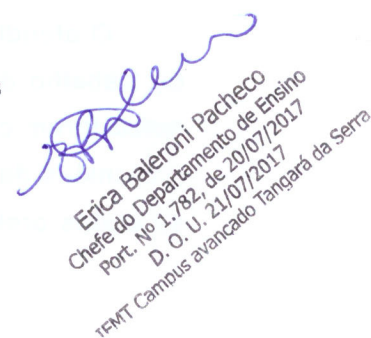 Erica Baleroni Pacheco
Chefe do Departamento de Ensino
Port. Nº 1.782, de 20/07/2017
D. O. U. 21/07/2017
IFMT Campus avançado Tangará da Serra